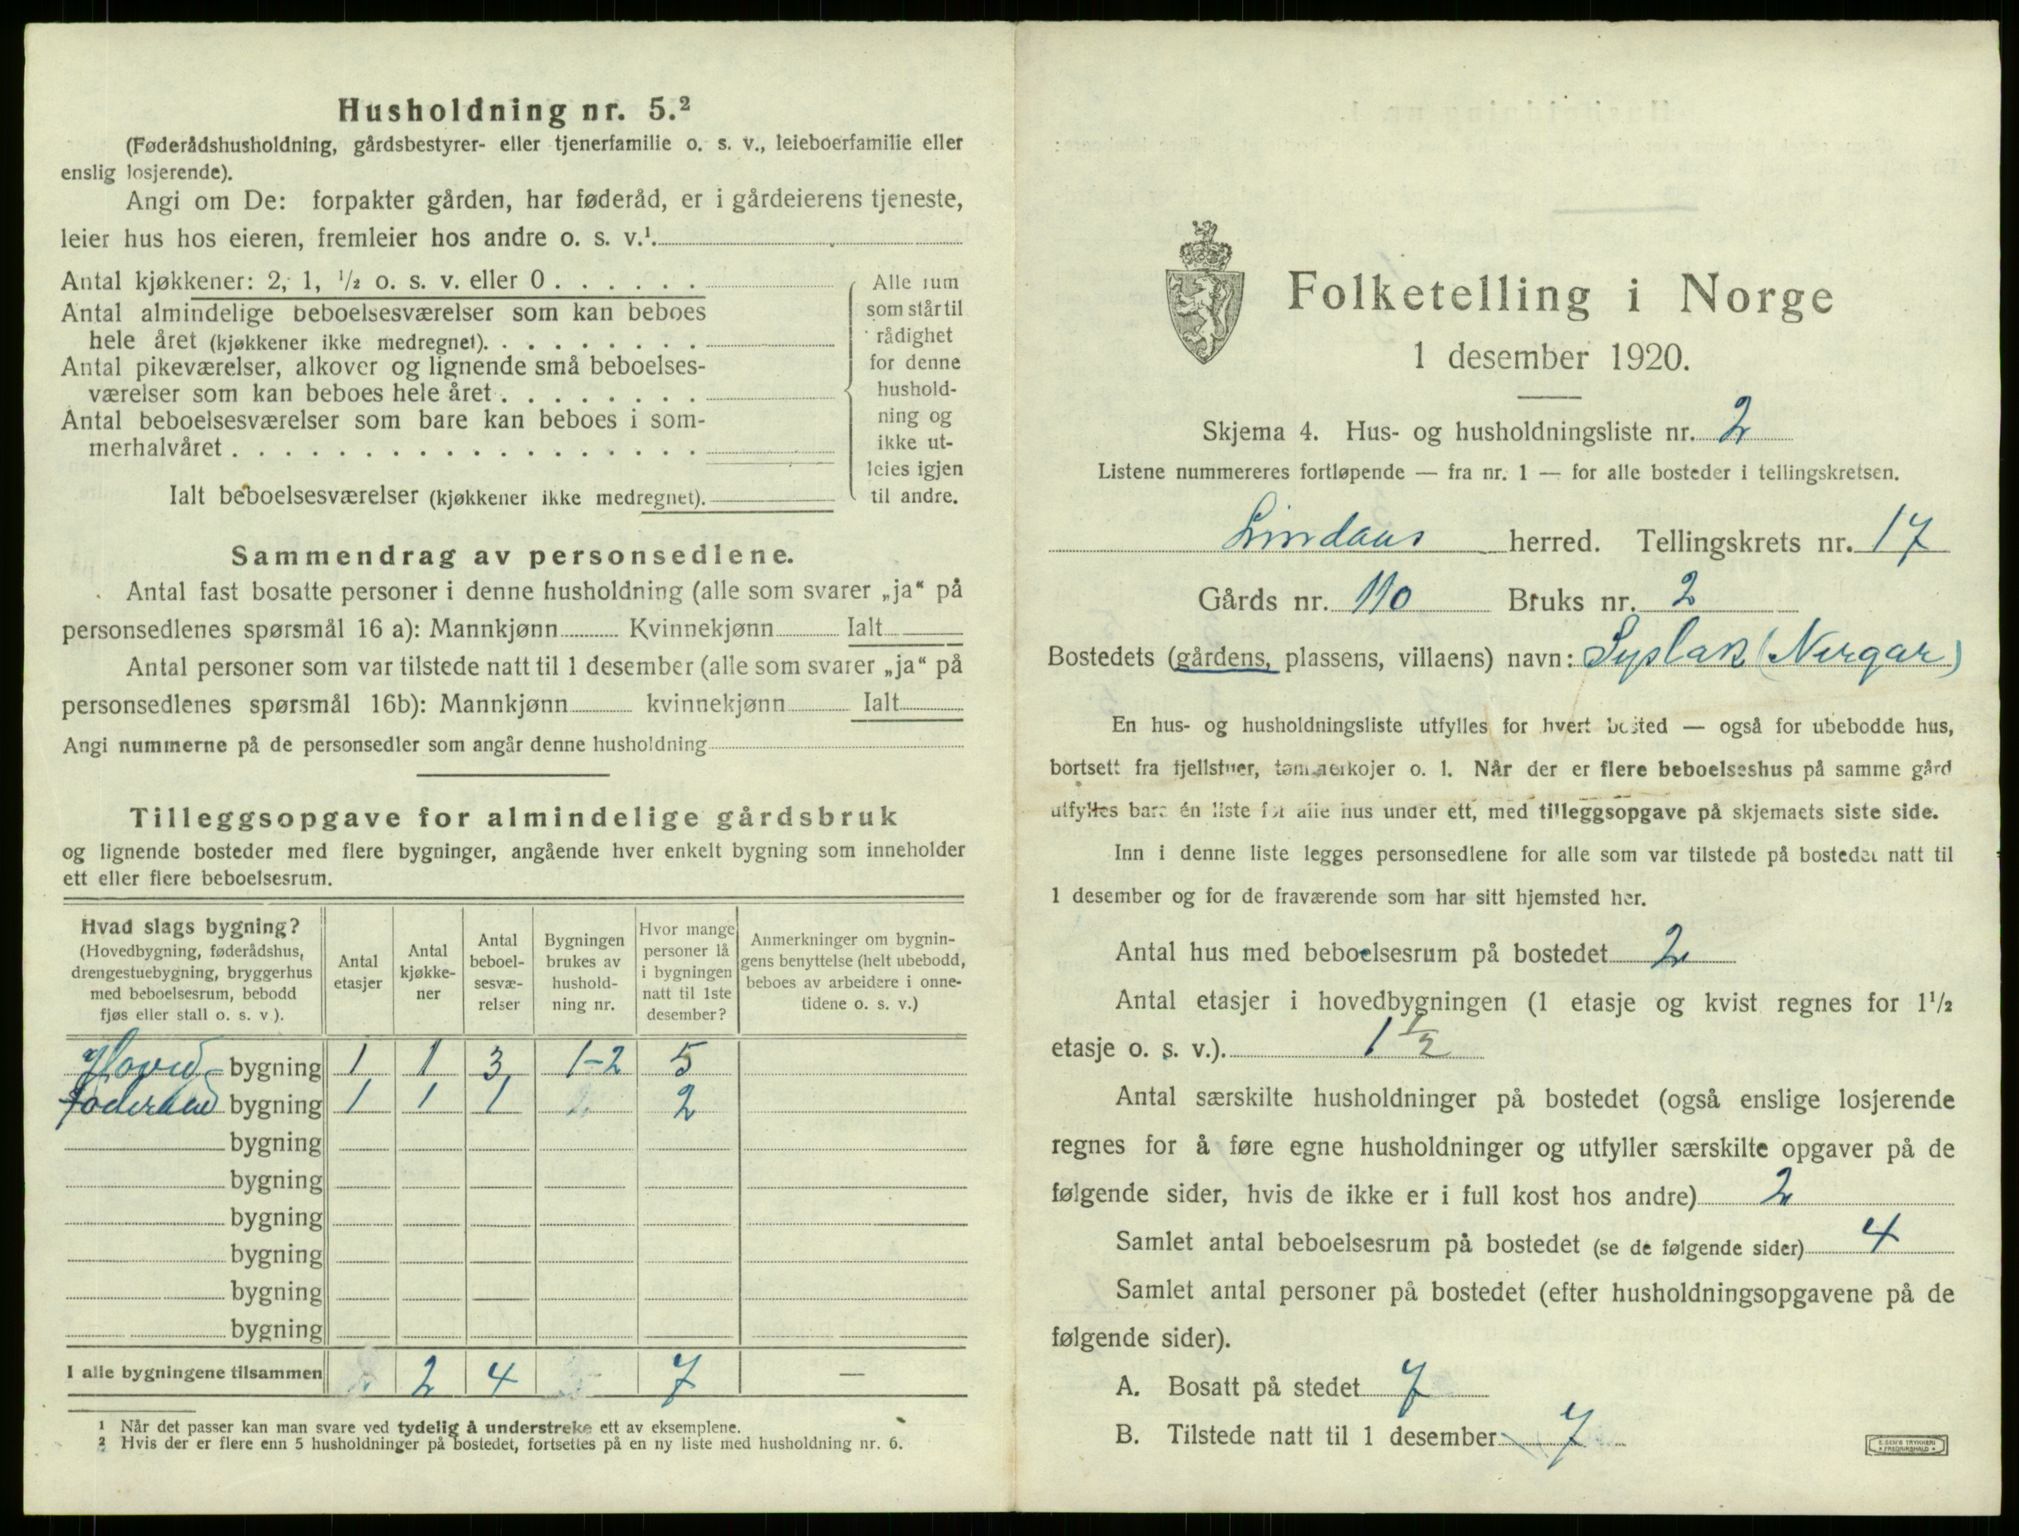 Husholdning nr. 5.²
(Føderådshusholdning, gårdsbestyrer- eller tjenerfamilie o. s. v., leieboerfamilie eller
enslig losjerende).
Angi om De: forpakter gården, har føderåd, er i gårdeierens tjeneste,
leier hus hos eieren, fremleier hos andre o. s. v.¹
Antal kjøkkener: 2, 1, ½ o. s. v. eller 0
Antal almindelige beboelsesværelser som kan beboes
hele året (kjøkkener ikke medregnet)
Antal pikeværelser, alkover og lignende små beboelses-
værelser som kan beboes hele året
Antal beboelsesværelser som bare kan beboes i som-
merhalvåret
Ialt beboelsesværelser (kjøkkener ikke medregnet)
Alle rum
som står til
rådighet
for denne
hushold-
ning og
ikke ut-
leies igjen
til andre.
Sammendrag av personsedlene.
Antal fast bosatte personer i denne husholdning (alle som svarer „ja“ på
personsedlenes spørsmål 16 a): Mannkjønn Kvinnekjønn Ialt
Antal personer som var tilstede natt til 1 desember (alle som svarer „ja“ på
personsedlenes spørsmål 16b): Mannkjønn kvinnekjønn Ialt
Angi nummerne på de personsedler som angår denne husholdning
Tilleggsopgave for almindelige gårdsbruk
og lignende bosteder med flere bygninger, angående hver enkelt bygning som inneholder
ett eller flere beboelsesrum.
Hvad slags bygning?
(Hovedbygning, føderådshus,
drengestuebygning, bryggerhus
med beboelsesrum, bebodd
fjøs eller stall o. s. v ).
Antal
etasjer
Antal
kjøkke-
ner
Antal
beboel-
sesvæ-
relser
Bygningen
brukes av
hushold-
ning nr.
Hvor mange
personer lå
i bygningen
natt til 1ste
desember?
Anmerkninger om bygnin-
gens benyttelse (helt ubebodd,
beboes av arbeidere i onne-
tidene o. s. v.)
Hoved- bygning 1 1 3 1-2 5
føderaad bygning 1 1 1 2
bygning
bygning
bygning
bygning
bygning
bygning
I alle bygningene tilsammen 2 4 7 —
¹ Når det passer kan man svare ved tydelig å understreke ett av eksemplene.
² Hvis der er flere enn 5 husholdninger på bostedet, fortsettes på en ny liste med husholdning nr. 6.
Folketelling i Norge
1 desember 1920.
Skjema 4. Hus- og husholdningsliste nr. 2
Listene nummereres fortløpende — fra nr. 1 — for alle bosteder i tellingskretsen.
Lindaas herred. Tellingskrets nr. 17
Gårds nr. 110 Bruks nr. 2
Bostedets (gårdens, plassens, villaens) navn: Syslak (Nergar)
En hus- og husholdningsliste utfylles for hvert bosted — også for ubebodde hus,
bortsett fra fjellstuer, tømmerkojer o. l. Når der er flere beboelseshus på samme gård
utfylles bare én liste for alle hus under ett, med tilleggsopgave på skjemaets siste side.
Inn i denne liste legges personsedlene for alle som var tilstede på bostedet natt til
1 desember og for de fraværende som har sitt hjemsted her.
Antal hus med beboelsesrum på bostedet 2
Antal etasjer i hovedbygningen (1 etasje og kvist regnes for 1½
etasje o. s. v.). 1½
Antal særskilte husholdninger på bostedet (også enslige losjerende
regnes for å føre egne husholdninger og utfyller særskilte opgaver på de
følgende sider, hvis de ikke er i full kost hos andre) 2
Samlet antal beboelsesrum på bostedet (se de følgende sider) 4
Samlet antal personer på bostedet (efter husholdningsopgavene på de
følgende sider).
A. Bosatt på stedet 7
B. Tilstede natt til 1 desember 7